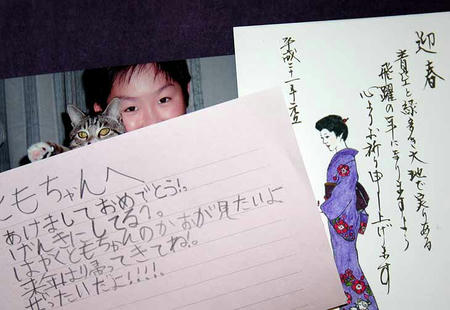 ともちゃんへ
あけましておめでとう!。
げんきにしてる?。
はやくともちゃんのかおが見たいよ
来年は帰ってきてね!。
ぜったいだよ!!!!
迎春
青空と緑多き大地で実りある
飛躍の年になりますよう
心よりお祈り申し上げます
平成二十一年